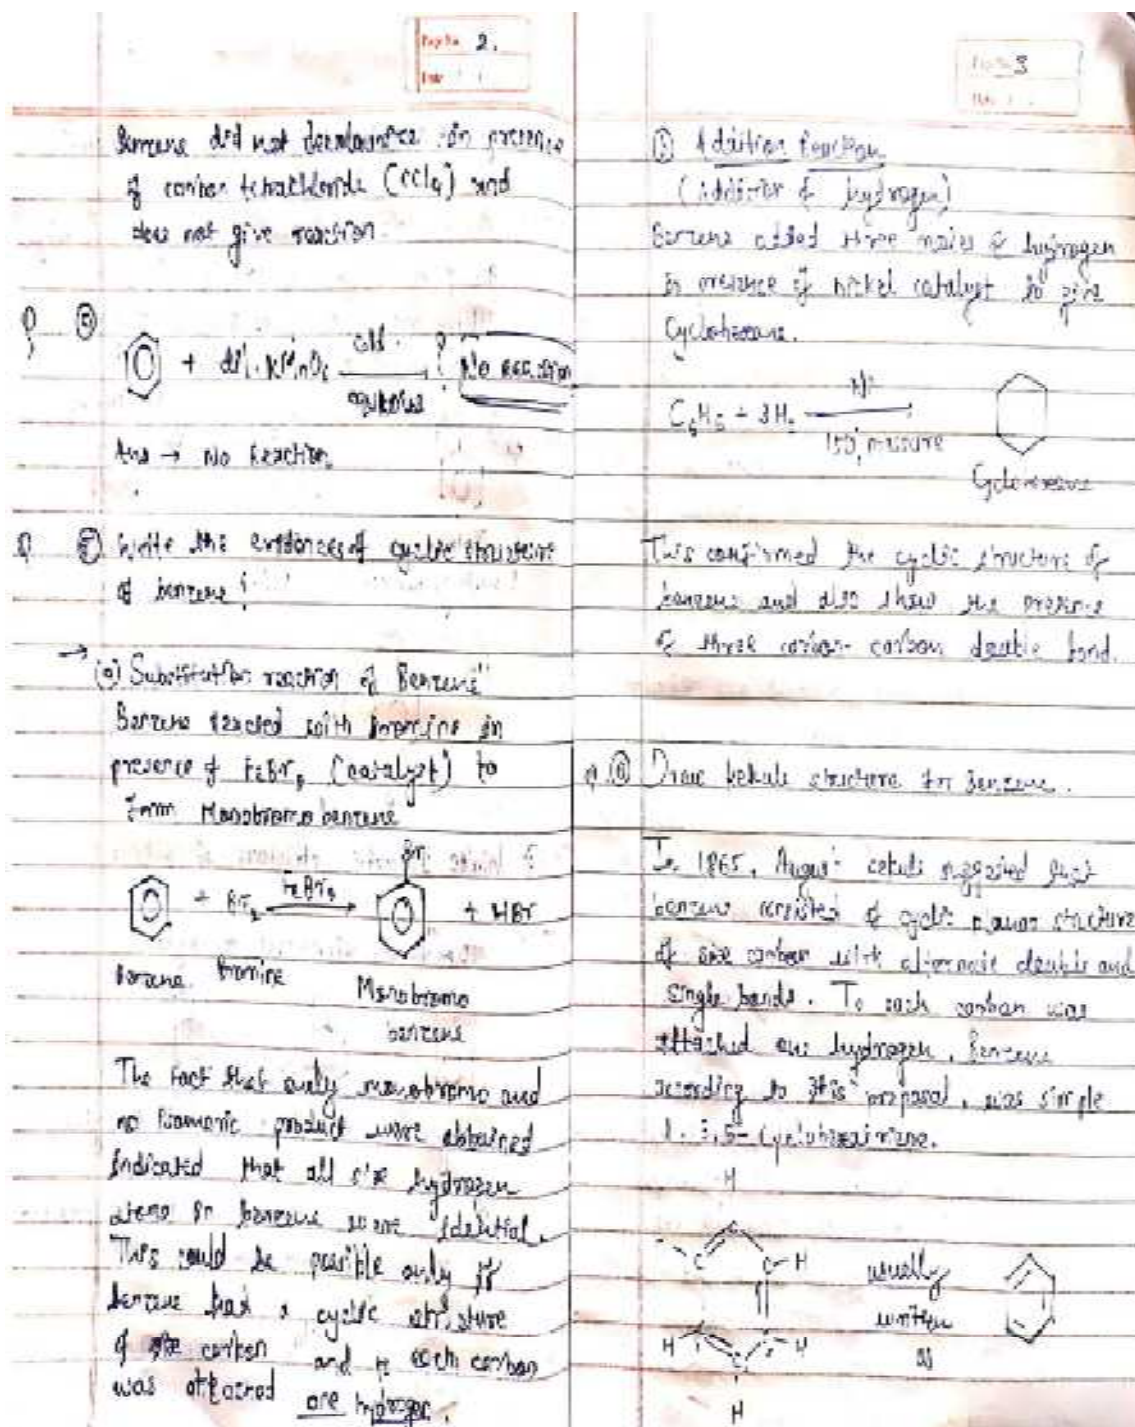 Page No. 2.
Date
Benzene did not decolourize in presence
of carbon tetrachloride (CCl4) and
does not give reaction.
Q (5)
+ dil. KMnO4 cold ? No reaction
alkaline
Ans → No Reaction.
Q Write the evidences of cyclic structure
of benzene?
→ (a) Substitution reaction of Benzene"
Benzene reacted with bromine in
presence of FeBr3 (catalyst) to
form Monobromo benzene
Br
+ Br2 FeBr3 + HBr
Benzene Bromine Monobromo
benzene
The fact that only monobromo and
no isomeric product were obtained
indicated that all six hydrogen
atoms in benzene were identical.
This could be possible only if
benzene had a cyclic structure
of six carbon and to each carbon
was attached one hydrogen.
3
Addition Reaction
(addition of hydrogen)
Benzene added three moles of hydrogen
in presence of nickel catalyst to give
Cyclohexane.
C6H6 + 3H2 Ni
150, pressure
Cyclohexane
This confirmed the cyclic structure of
benzene and also show the presence
of three carbon-carbon double bond.
Q. (6) Draw kekule structure for benzene.
In 1865, August kekule suggested that
benzene consisted of cyclic planar structure
of six carbon with alternate double and
single bonds. To each carbon was
attached one hydrogen. Benzene
according to this proposal, was simple
1,3,5-cyclohexatriene.
H
C
C C-H usually
written
H C C H as
C
H